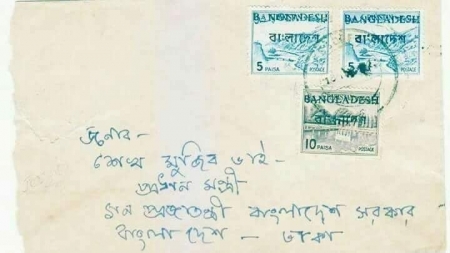 BANGLADESH
বাংলাদেশ
5 PAISA POSTAGE
BANGLADESH
বাংলাদেশ
5 PAISA POSTAGE
BANGLADESH
বাংলাদেশ
10 PAISA POSTAGE
জনাব -
শেখ মুজিব ভাই -
প্রধান মন্ত্রী
গন প্রজাতন্ত্রী বাংলাদেশ সরকার -
বাংলা দেশ - ঢাকা